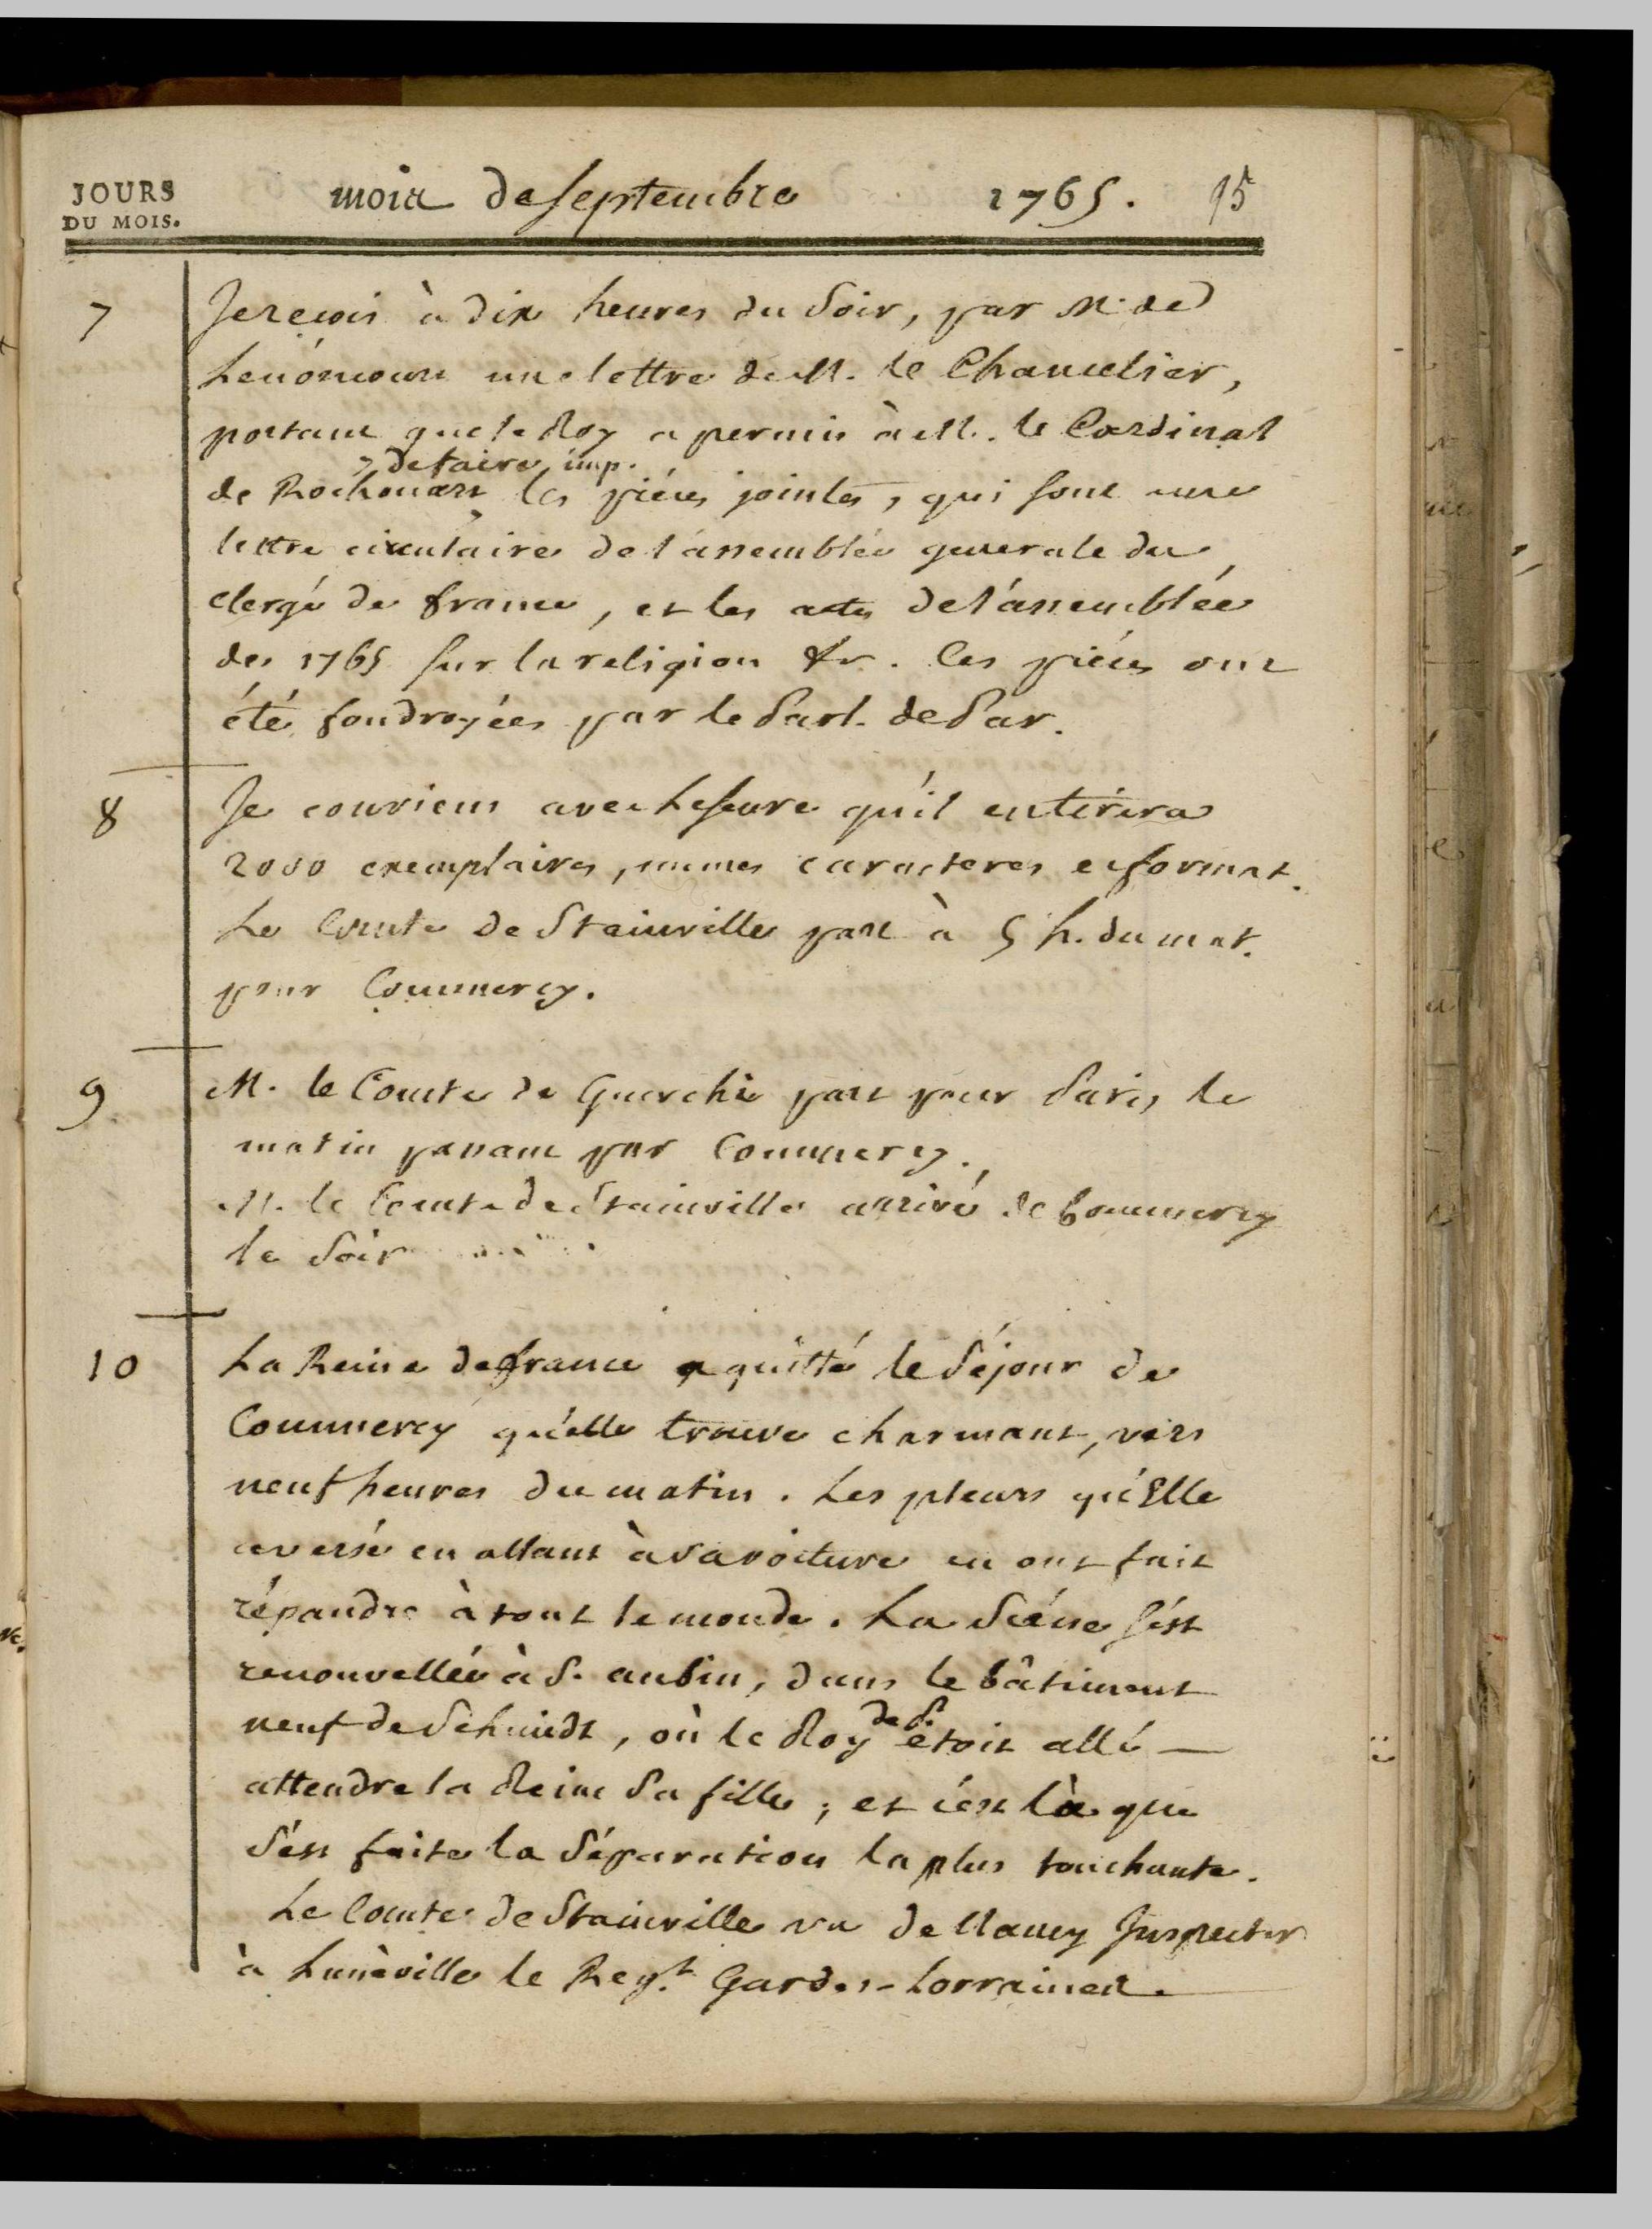 JOURS
DU MOIS.
mois de septembre 1765. 95
7
Je reçois à dix heures du soir, par M. de
Lenóncourt une lettre de M. le Chancelier,
portant que le Roy a permis à M. le Cardinal
de faire imp.
de Rochouart les piéces jointes, qui sont une
lettre circulaire de l'assemblée generale du
clergé de france, et les actes de l'assemblée
de 1765 sur la religion &c. Ces piéces ont
été foudroyées par le Parl. de Par.
8
Je conviens avec Leseure qu'il en tirera
2000 exemplaires, mêmes caracteres et format.
Le Comte de Stainville part à 5 h. du mat.
pour Commercy.
9
M. le Comte de Guerchi part pour Paris le
matin passant par Commercy.
M. le Comte de Stainville arrivé de Commercy
le soir
10
La Reine de france a quitté le séjour de
Commercy qu'elle trouve charmant, vers
neuf heures du matin. Les pleurs qu'Elle
a versé en allant à sa voiture en ont fait
répandre à tout le monde. La Scéne s'est
renouvellée à S. aubin, dans le bâtiment
neuf de Schmidt, où le Roy de P. étoit allé
attendre la Reine sa fille; et c'est là que
s'est faite la séparation la plus touchante.
Le Comte de Stainville va de Nancy Inspecter
à Lunéville le Regt. Gardes-Lorraines.